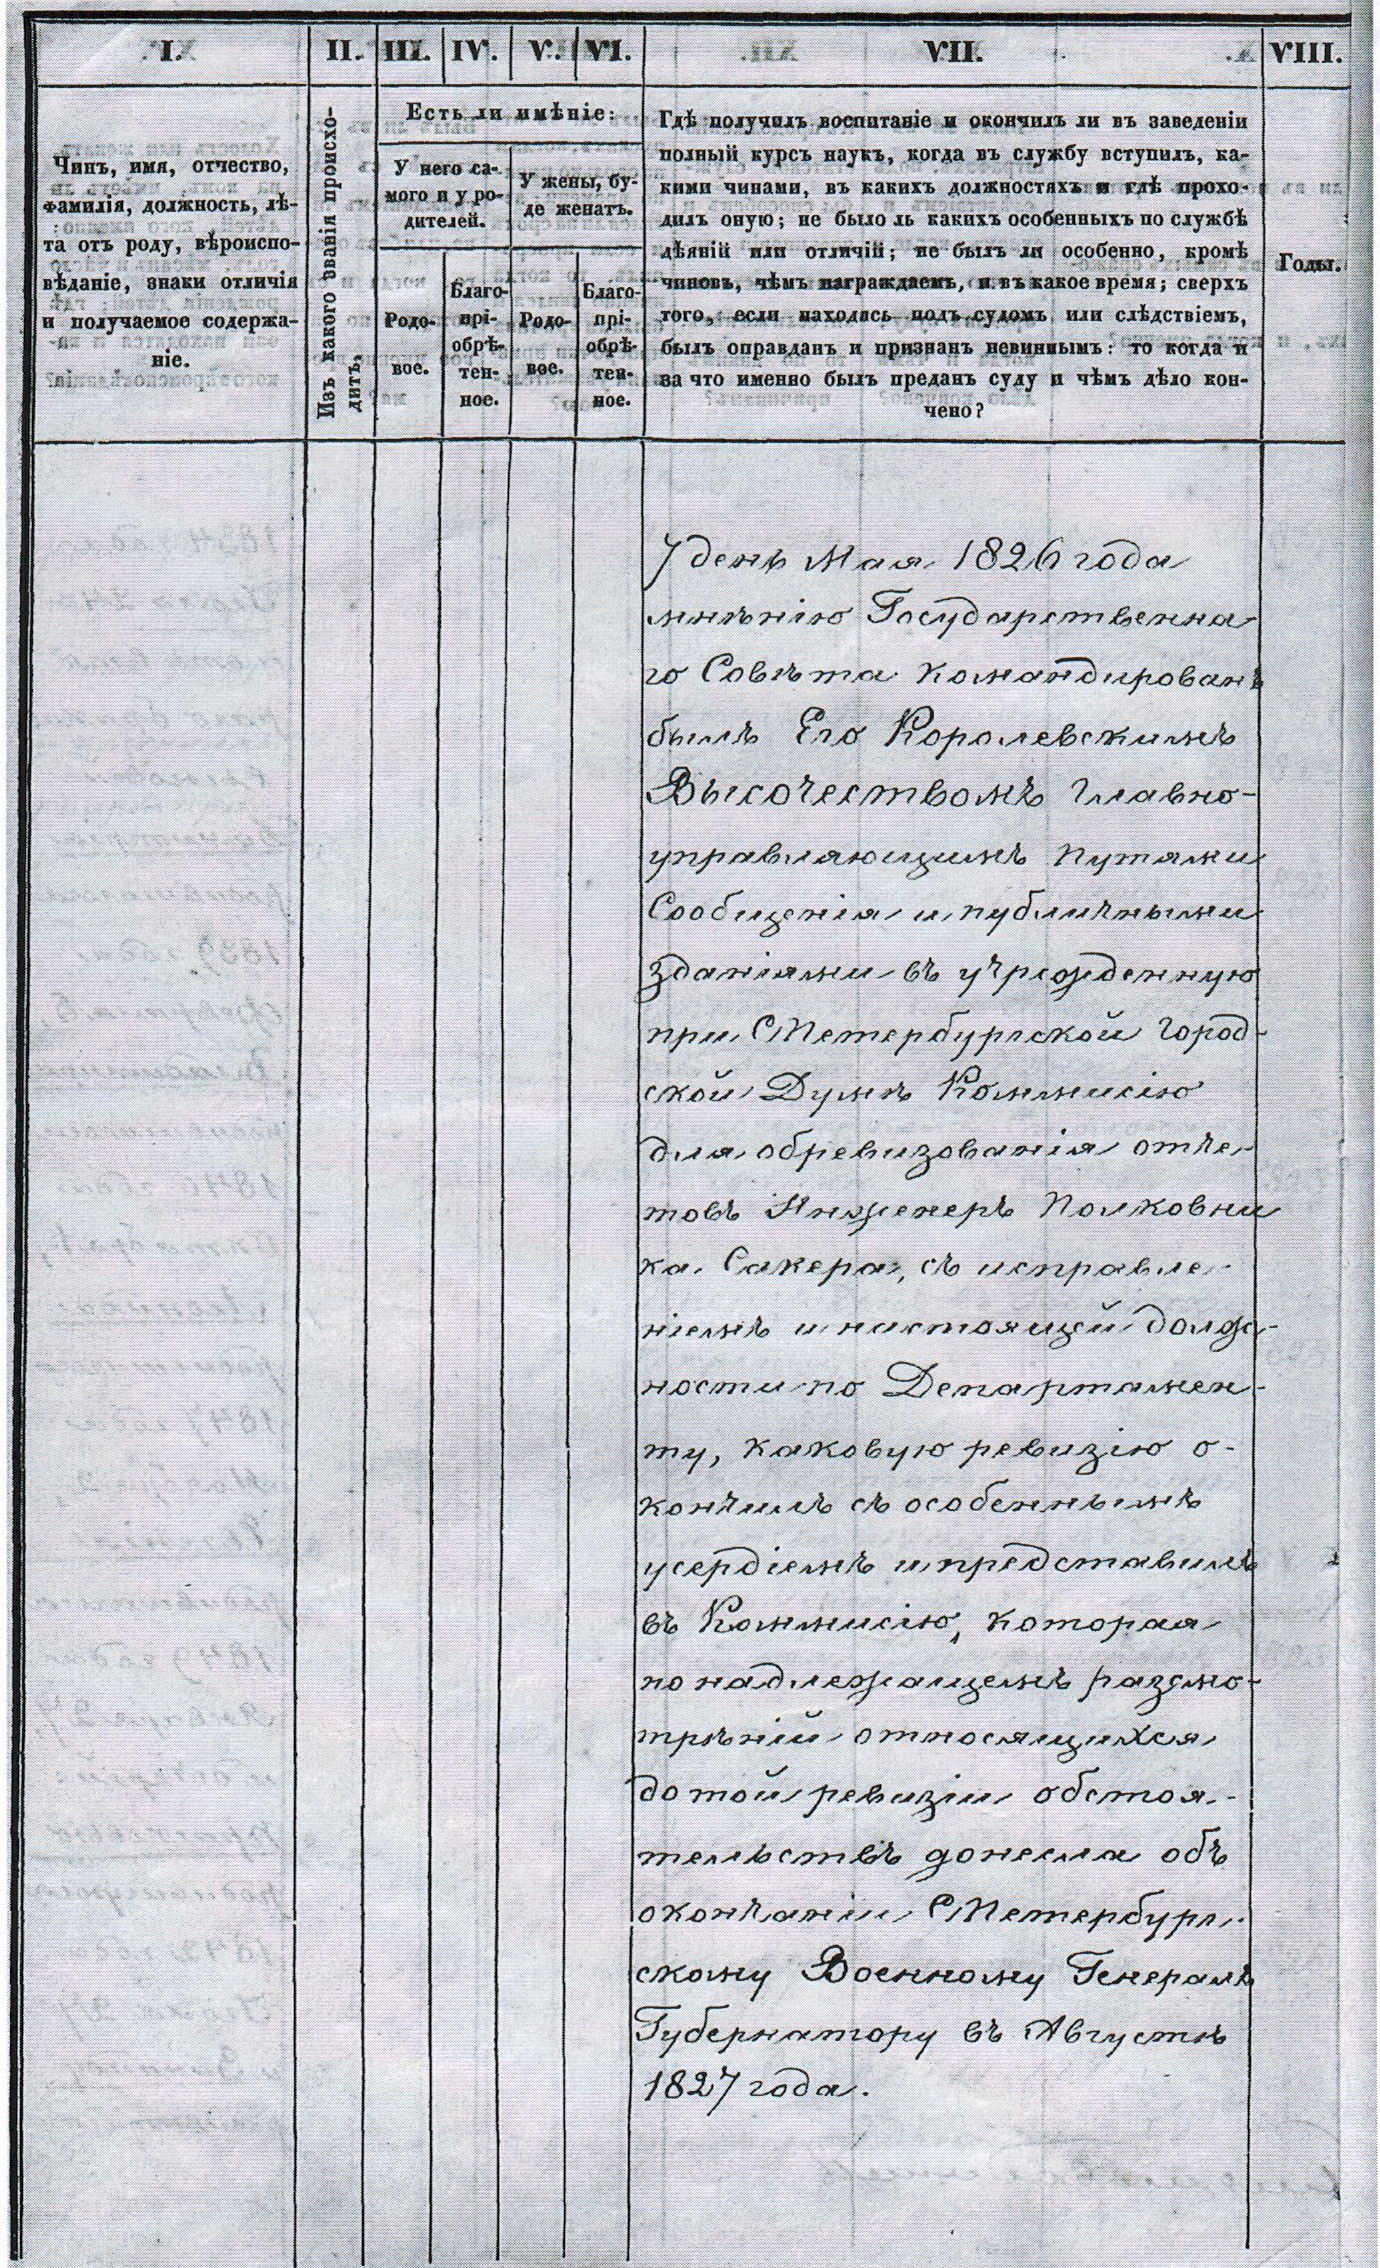 I.
II.
III.
IV.
V.
VI.
VII.
VIII.
Чинъ, имя, отчество,
фамилія, должность, лѣ-
та отъ роду, вѣроиспо-
вѣданіе, знаки отличія
и получаемое содержа-
ніе.
Изъ какого званія происхо-
дитъ.
Есть ли имѣніе:
У него са-
мого и у ро-
дителей.
У жены, бу-
де женатъ.
Родо-
вое.
Благо-
прі-
обрѣ-
тен-
ное.
Родо-
вое.
Благо-
прі-
обрѣ-
тен-
ное.
Гдѣ получилъ воспитаніе и окончилъ ли въ заведеніи
полный курсъ наукъ, когда въ службу вступилъ, ка-
кими чинами, въ какихъ должностяхъ и гдѣ прохо-
дилъ оную; не было ль какихъ особенныхъ по службѣ
дѣяній или отличій; не былъ ли особенно, кромѣ
чиновъ, чѣмъ награждаемъ, и въ какое время; сверхъ
того, если находясь подъ судомъ или слѣдствіемъ,
былъ оправданъ и признанъ невиннымъ: то когда и
за что именно былъ преданъ суду и чѣмъ дѣло кон-
чено?
Годы.
7 день Мая 1826 года
мнѣнію Государственна
го Совѣта командированъ
былъ Его Королевскимъ
Высочествомъ Главно-
управляющимъ путями
Сообщенія и публичными
зданіями въ учрежденную
при СПетербургской Город-
ской Думѣ Коммисію
для обревизованія отче-
товъ Инженеръ Полковни
ка Сакера, съ исправле-
ніемъ и настоящей долж-
ности по Департамен-
ту, каковую ревизію о-
кончилъ съ особеннымъ
усердіемъ и представилъ
въ Коммисію, которая
по надлежащемъ разсмо-
трѣніи относящихся
до той ревизіи обстоя-
тельствъ донесла объ
окончаніи СПетербург-
скому Военному Генералъ
Губернатору въ Августѣ
1827 года.